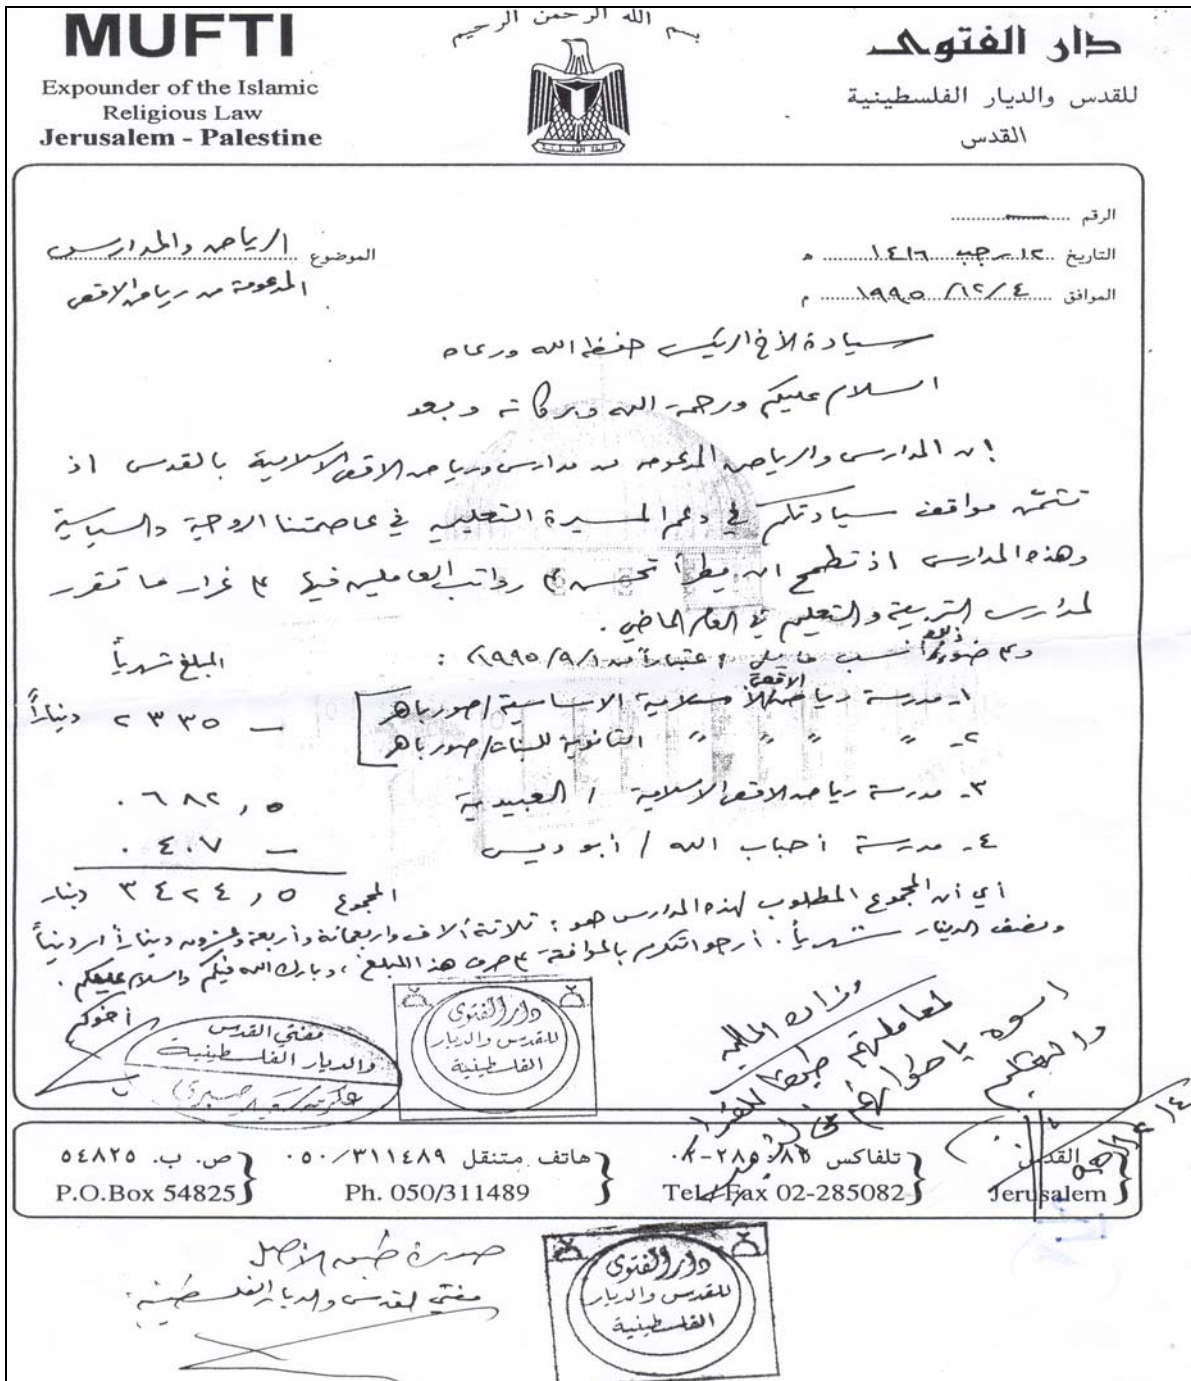 MUFTI
Expounder of the Islamic
Religious Law
Jerusalem - Palestine
بسم الله الرحمن الرحيم
دار الفتوى
للقدس والديار الفلسطينية
القدس
الرقم
التاريخ ١٢ رجب ١٤١٦ هـ
الموافق ١٩٩٥/١٢/٤ م
الموضوع الرياض والمدارس
المدعومة من رياض الاقصى
سيادة الأخ الرئيس حفظه الله ورعاه
السلام عليكم ورحمة الله وبركاته وبعد
إن المدارس والرياض المدعومة من مدارس ورياض الاقصى الاسلامية بالقدس اذ
تثمّن مواقف سيادتكم في دعم المسيرة التعليمية في عاصمتنا الروحية والسياسية
وهذه المدارس اذ تطمح ان يطرأ تحسن على رواتب العاملين فيها على غرار ما تقرر
لمدارس التربية والتعليم في العام الماضي.
وعلى ضوء ذلك نسب ما يلي اعتباراً من ١٩٩٥/٩/١ :
المبلغ شهرياً
١- مدرسة رياض الاقصى الاسلامية الاساسية / صورباهر
٢- " " " " الثانوية للبنات / صورباهر
٢٣٣٥ – ديناراً
٣- مدرسة رياض الاقصى الاسلامية / العبيدية ٠٦٨٢,٥
٤- مدرسة أحباب الله / أبو ديس ٠٤٠٧ –
المجموع ٣٤٢٤,٥ دينار
أي أن المجموع المطلوب لهذه المدارس هو : ثلاثة آلاف واربعمائة وأربعة وعشرون ديناراً اردنياً
ونصف الدينار شهرياً. أرجو التكرم بالموافقة على صرف هذا المبلغ، وبارك الله فيكم والسلام عليكم.
أخوكم
مفتي القدس
والديار الفلسطينية
عكرمة سعيد صبري
دار الفتوى
للقدس والديار
الفلسطينية
وزارة المالية
لمعاملتهم طبقا
اسوة
القدس
Jerusalem
تلفاكس
Tel./Fax 02-285082
هاتف متنقل ٠٥٠/٣١١٤٨٩
Ph. 050/311489
ص. ب. ٥٤٨٢٥
P.O.Box 54825
صورة طبق الأصل
مفتي القدس والديار الفلسطينية
دار الفتوى
للقدس والديار
الفلسطينية